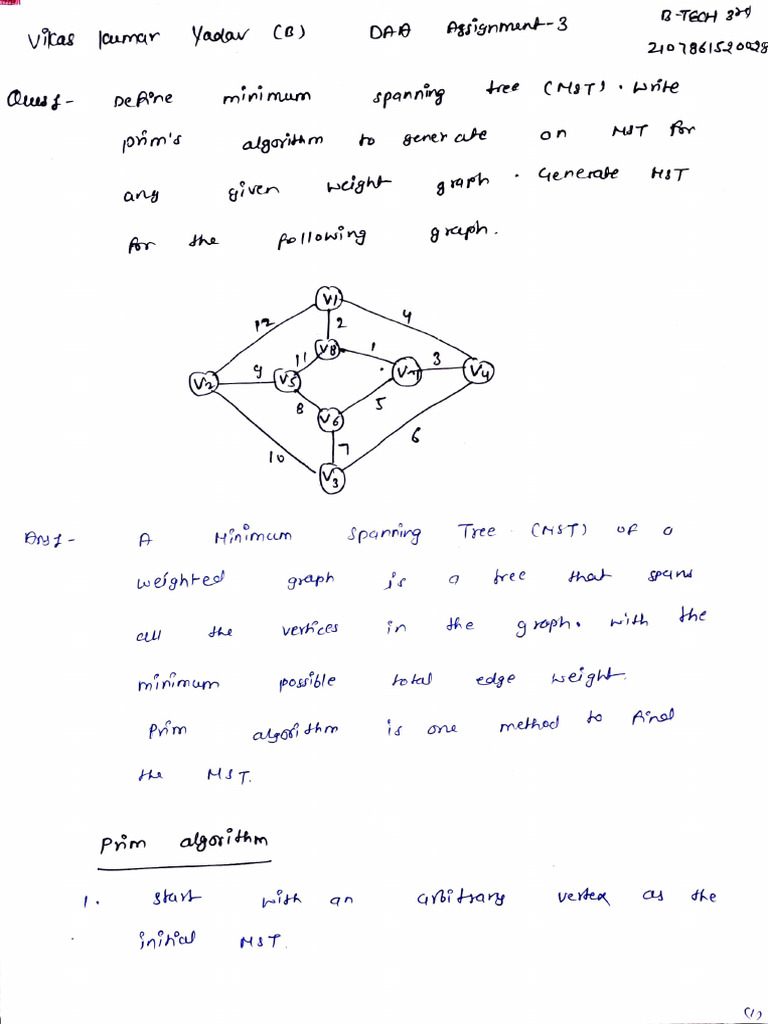 Vikas Kumar Yadav (B) DAA Assignment-3 B-TECH 3rd
Ques1- Define minimum spanning tree (MST). Write
prim's algorithm to generate on MST for
any given weight graph. Generate MST
for the following graph.
V1
12 2 4
V8
11 1 3
9 V5 V7 V4
V2
8 5
V6
6
10 7
V3
Ans1- A Minimum Spanning Tree (MST) of a
weighted graph is a tree that spans
all the vertices in the graph. with the
minimum possible total edge weight.
Prim algorithm is one method to find
the MST.
Prim algorithm
1. Start with an arbitrary vertex as the
initial MST.
(1)